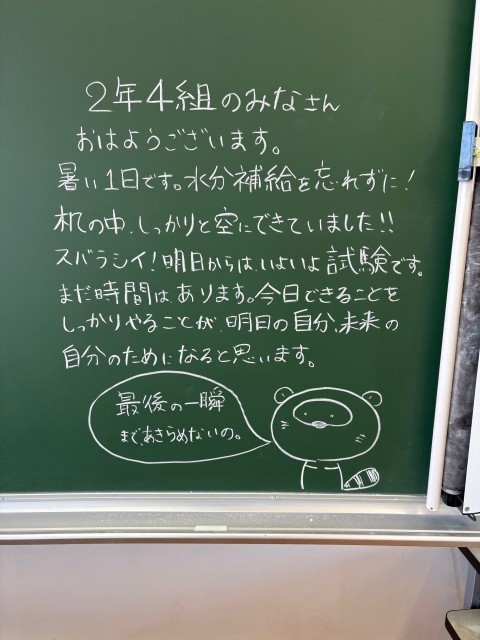 2年4組のみなさん
おはようございます。
暑い1日です。水分補給を忘れずに!
机の中、しっかりと空にできていました!!
スバラシイ!明日からは、いよいよ試験です。
まだ時間は、あります。今日できることを
しっかりやることが、明日の自分、未来の
自分のためになると思います。
最後の一瞬
まで、あきらめないの。